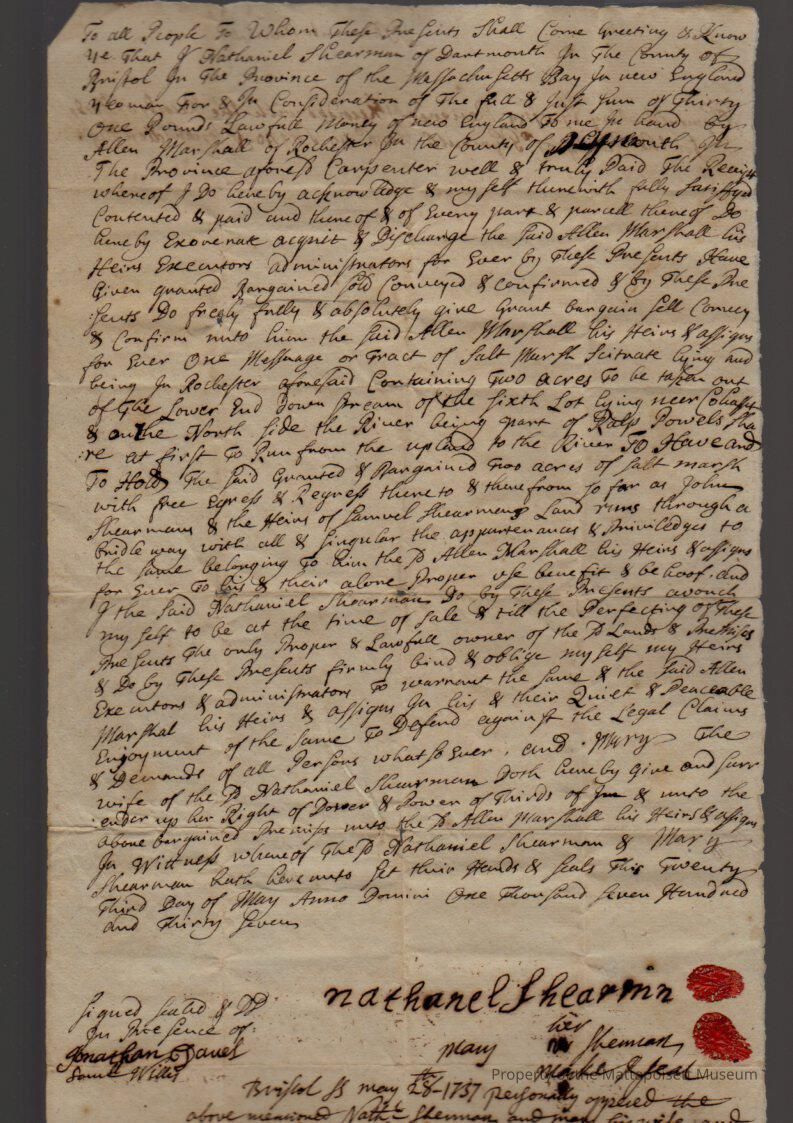 To all People To Whom These Presents Shall Come Greeting & Know
ye That I Nathaniel Shearman of Dartmouth In The County of
Bristol In The Province of the Massachusetts Bay In new England
yeoman For & In Consideration of The full & Just sum of Thirty
One Pounds Lawfull Money of new England To me In hand by
Allen Marshall of Rochester In the County of Plymouth In
The Province aforesd Carpenter well & truly Paid The Receipt
whereof I Do hereby acknowledge & my self therewith fully satisfyed
Contented & paid and thereof & of Every part & parcell thereof Do
hereby Exonerate acquit & Discharge the said Allen Marshall his
Heirs Executors administrators for Ever by These Presents Have
Given granted Bargained sold Conveyed & confirmed & by These Pre
:sents Do freely fully & absolutely give Grant bargain sell Convey
& Confirm unto him the said Allen Marshall his Heirs & assigns
for Ever One Messuage or Tract of salt Marsh scituate lying and
being In Rochester aforesaid Containing Two acres To be taken out
of The Lower End Down stream of the sixth Lot lying neer
& on the North side the River being part of Ralp Powels sha
:re at first To Run from the upland to the River To Have and
To Hold The said Granted & Bargained Two acres of salt marsh
with free Egress & Regress thereto & therefrom so far as John
Shearmans & the Heirs of Samuel Shearmans Land runs through a
bridle way with all & singular the appurtenances & Priviledges to
the same belonging To him the sd Allen Marshall his Heirs & assigns
for Ever To his & their alone Proper use benefit & behoof. and
I the said Nathaniel Shearman Do by These Presents avouch
my self to be at the time of sale & till the Perfecting of These
Presents The only Proper & Lawfull owner of the sd Lands & Premises
& Do by These Presents firmly bind & oblige my self my Heirs
Executors & administrators To warrant the same & the said Allen
Marshal his Heirs & assigns In his & their Quiet & Peaceable
Enjoyment of the same To Defend against the Legal Claims
& Demands of all Persons whatso Ever. and Mary The
wife of the sd Nathaniel Shearman Doth hereby Give and surr
:ender up her Right of Dower & Power of Thirds of In & unto the
above bargained Premises unto the sd Allen Marshall his Heirs & assigns
In Wittness whereof The sd Nathaniel Shearman & Mary
Shearman hath hereunto set their Hands & seals This Twenty
Third Day of May Anno Domini One Thousand seven Hundred
and Thirty seven
nathanel Shearmn
signed sealed & DD
In Presence of:
Jonathan
Saml Willis
her
mary Sherman
marke & seal
Property of the Mattapoisett Museum
Bristol ss may 28th 1737 Personally appeared the
above mentioned Nathll Sherman and mary his wife and